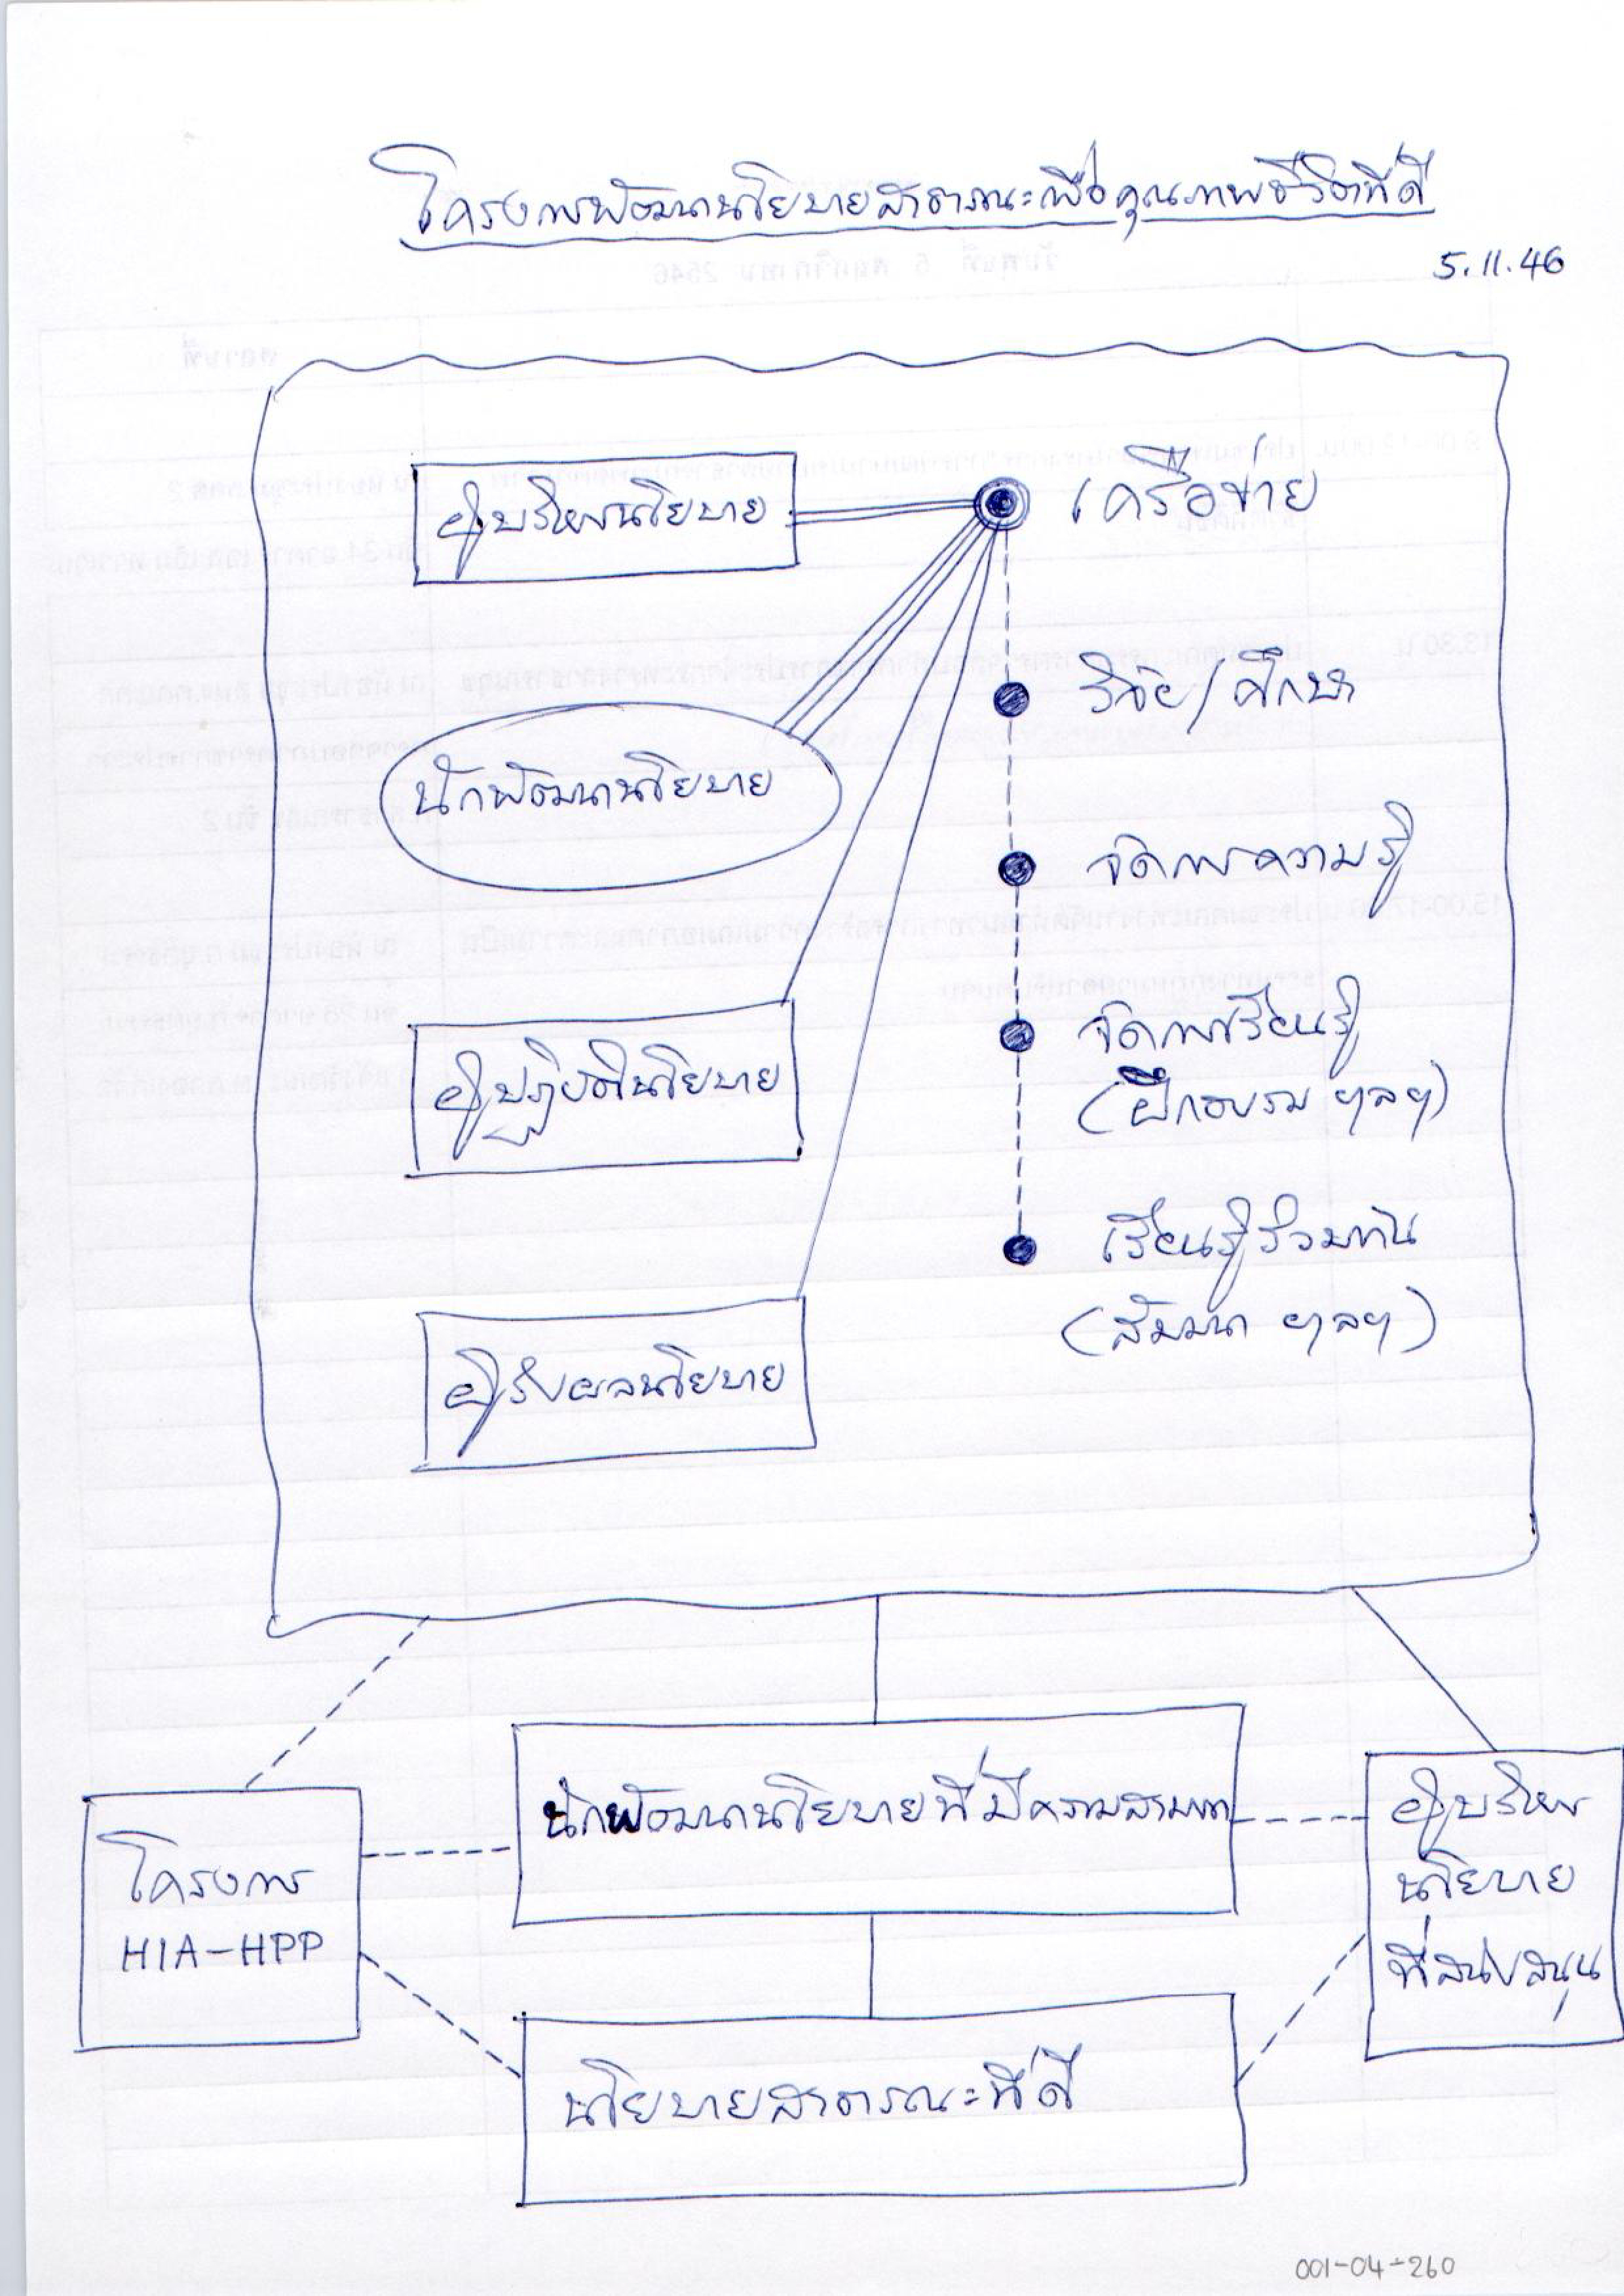 โครงการพัฒนานโยบายสาธารณะเพื่อคุณภาพชีวิตที่ดี
5.11.46
ผู้บริหารนโยบาย
เครือข่าย
วิจัย/ศึกษา
นักพัฒนานโยบาย
จัดการความรู้
จัดการเรียนรู้
(ฝึกอบรม ฯลฯ)
ผู้ปฏิบัตินโยบาย
เรียนรู้ร่วมกัน
(สัมมนา ฯลฯ)
ผู้รับผลนโยบาย
นักพัฒนานโยบายที่มีความสามารถ
โครงการ
HIA-HPP
ผู้บริหาร
นโยบาย
ที่สนับสนุน
นโยบายสาธารณะที่ดี
001-04-260